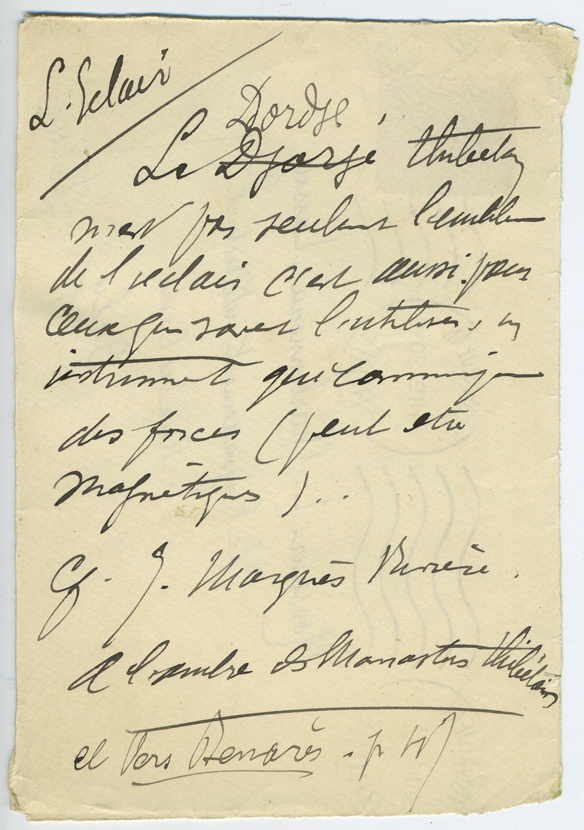 L'Eclair
Dordje
Le Djorjé thibetain
n'est pas seulement l'emblème
de l'éclair c'est aussi, pour
ceux qui savent l'utiliser, un
instrument qui communique
des forces (peut etre
magnétiques)...
Cf. J. Marquès Rivière.
A l'ombre des Monastères thibétains
et Vers Benarès. p.